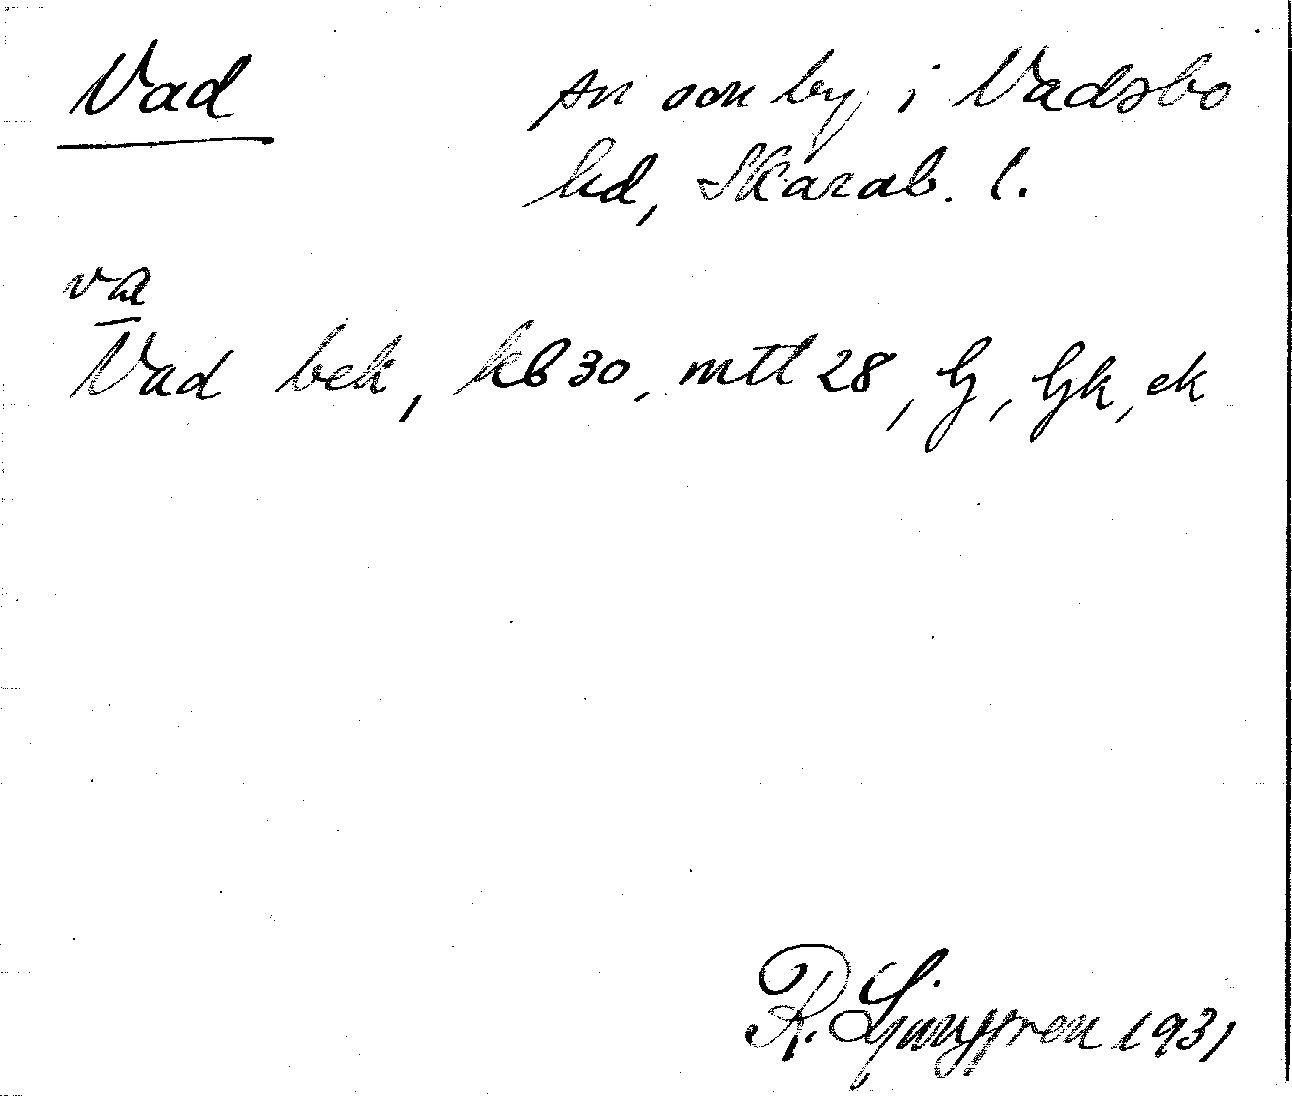 Vad sn och by i Vadsbo
hd, Skarab. l.
va
Vad bek, kb 30, mtl 28, Lj, Ljk, ek
R. Ljunggren 1931